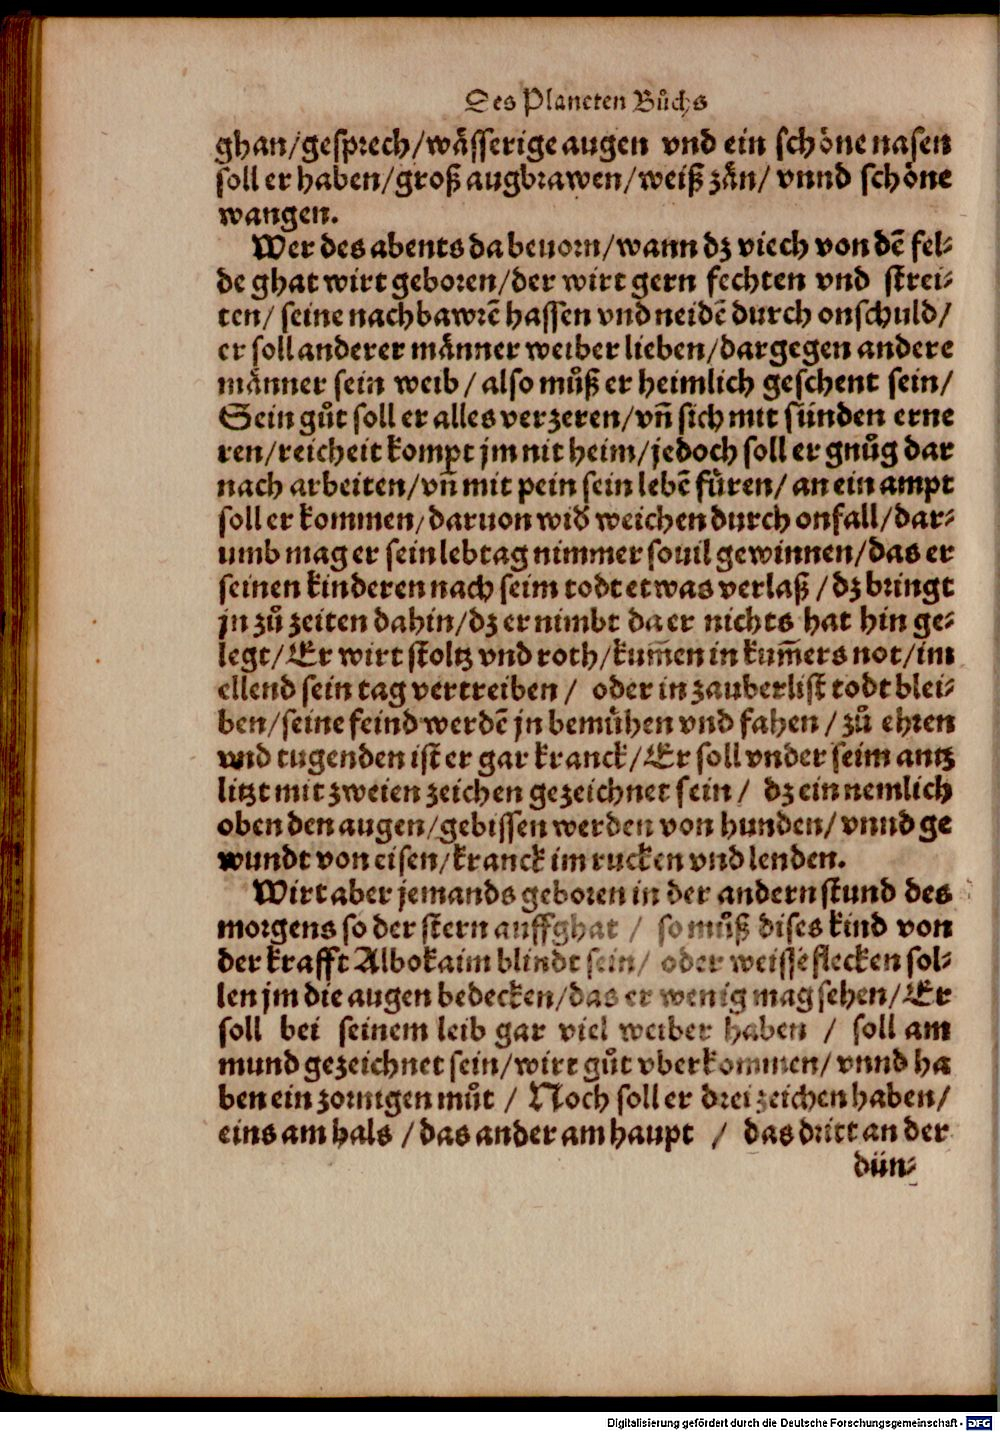 Des Planeten Bůchs
ghan/gesprech/wässerige augen vnd ein schöne nasen
soll er haben/groß augbrawen/weiß zän/ vnnd schöne
wangen.
Wer des abents da beuorn/wann dz viech von dē fel-
de ghat wirt geboren/der wirt gern fechten vnd strei-
ten/ seine nachbawrē hassen vnd neidē durch onschuld/
er soll anderer männer weiber lieben/dargegen andere
männer sein weib / also můß er heimlich geschent sein/
Sein gůt soll er alles verzeren/vñ sich mit sünden erne
ren/reicheit kompt jm nit heim/jedoch soll er gnůg dar
nach arbeiten/vñ mit pein sein lebē füren/ an ein ampt
soll er kommen/daruon wid weichen durch onfall/dar-
umb mag er sein lebtag nimmer souil gewinnen/das er
seinen kinderen nach seim todt etwas verlaß / dz bringt
jn zů zeiten dahin/dz er nimbt da er nichts hat hin ge-
legt/Er wirt stoltz vnd roth/kum̄en in kum̄ers not/im
ellend sein tag vertreiben / oder in zauberlist todt blei-
ben/seine feind werdē jn bemühen vnd fahen / zů ehren
vnd tugenden ist er gar kranck/Er soll vnder seim antz
litzt mit zweien zeichen gezeichnet sein / dz ein nemlich
oben den augen/gebissen werden von hunden/ vnnd ge
wundt von eisen/kranck im rucken vnd lenden.
Wirt aber jemands geboren in der andern stund des
morgens so der stern auffghat / so můß dises kind von
der krafft Albokaim blindt sein/ oder weisse flecken sol-
len jm die augen bedecken/das er wenig mag sehen/Er
soll bei seinem leib gar viel weiber haben / soll am
mund gezeichnet sein/wirt gůt vberkommen/ vnnd ha
ben ein zornigen můt / Noch soll er drei zeichen haben/
eins am hals / das ander am haupt / das dritt an der
dün-
Digitalisierung gefördert durch die Deutsche Forschungsgemeinschaft - DFG